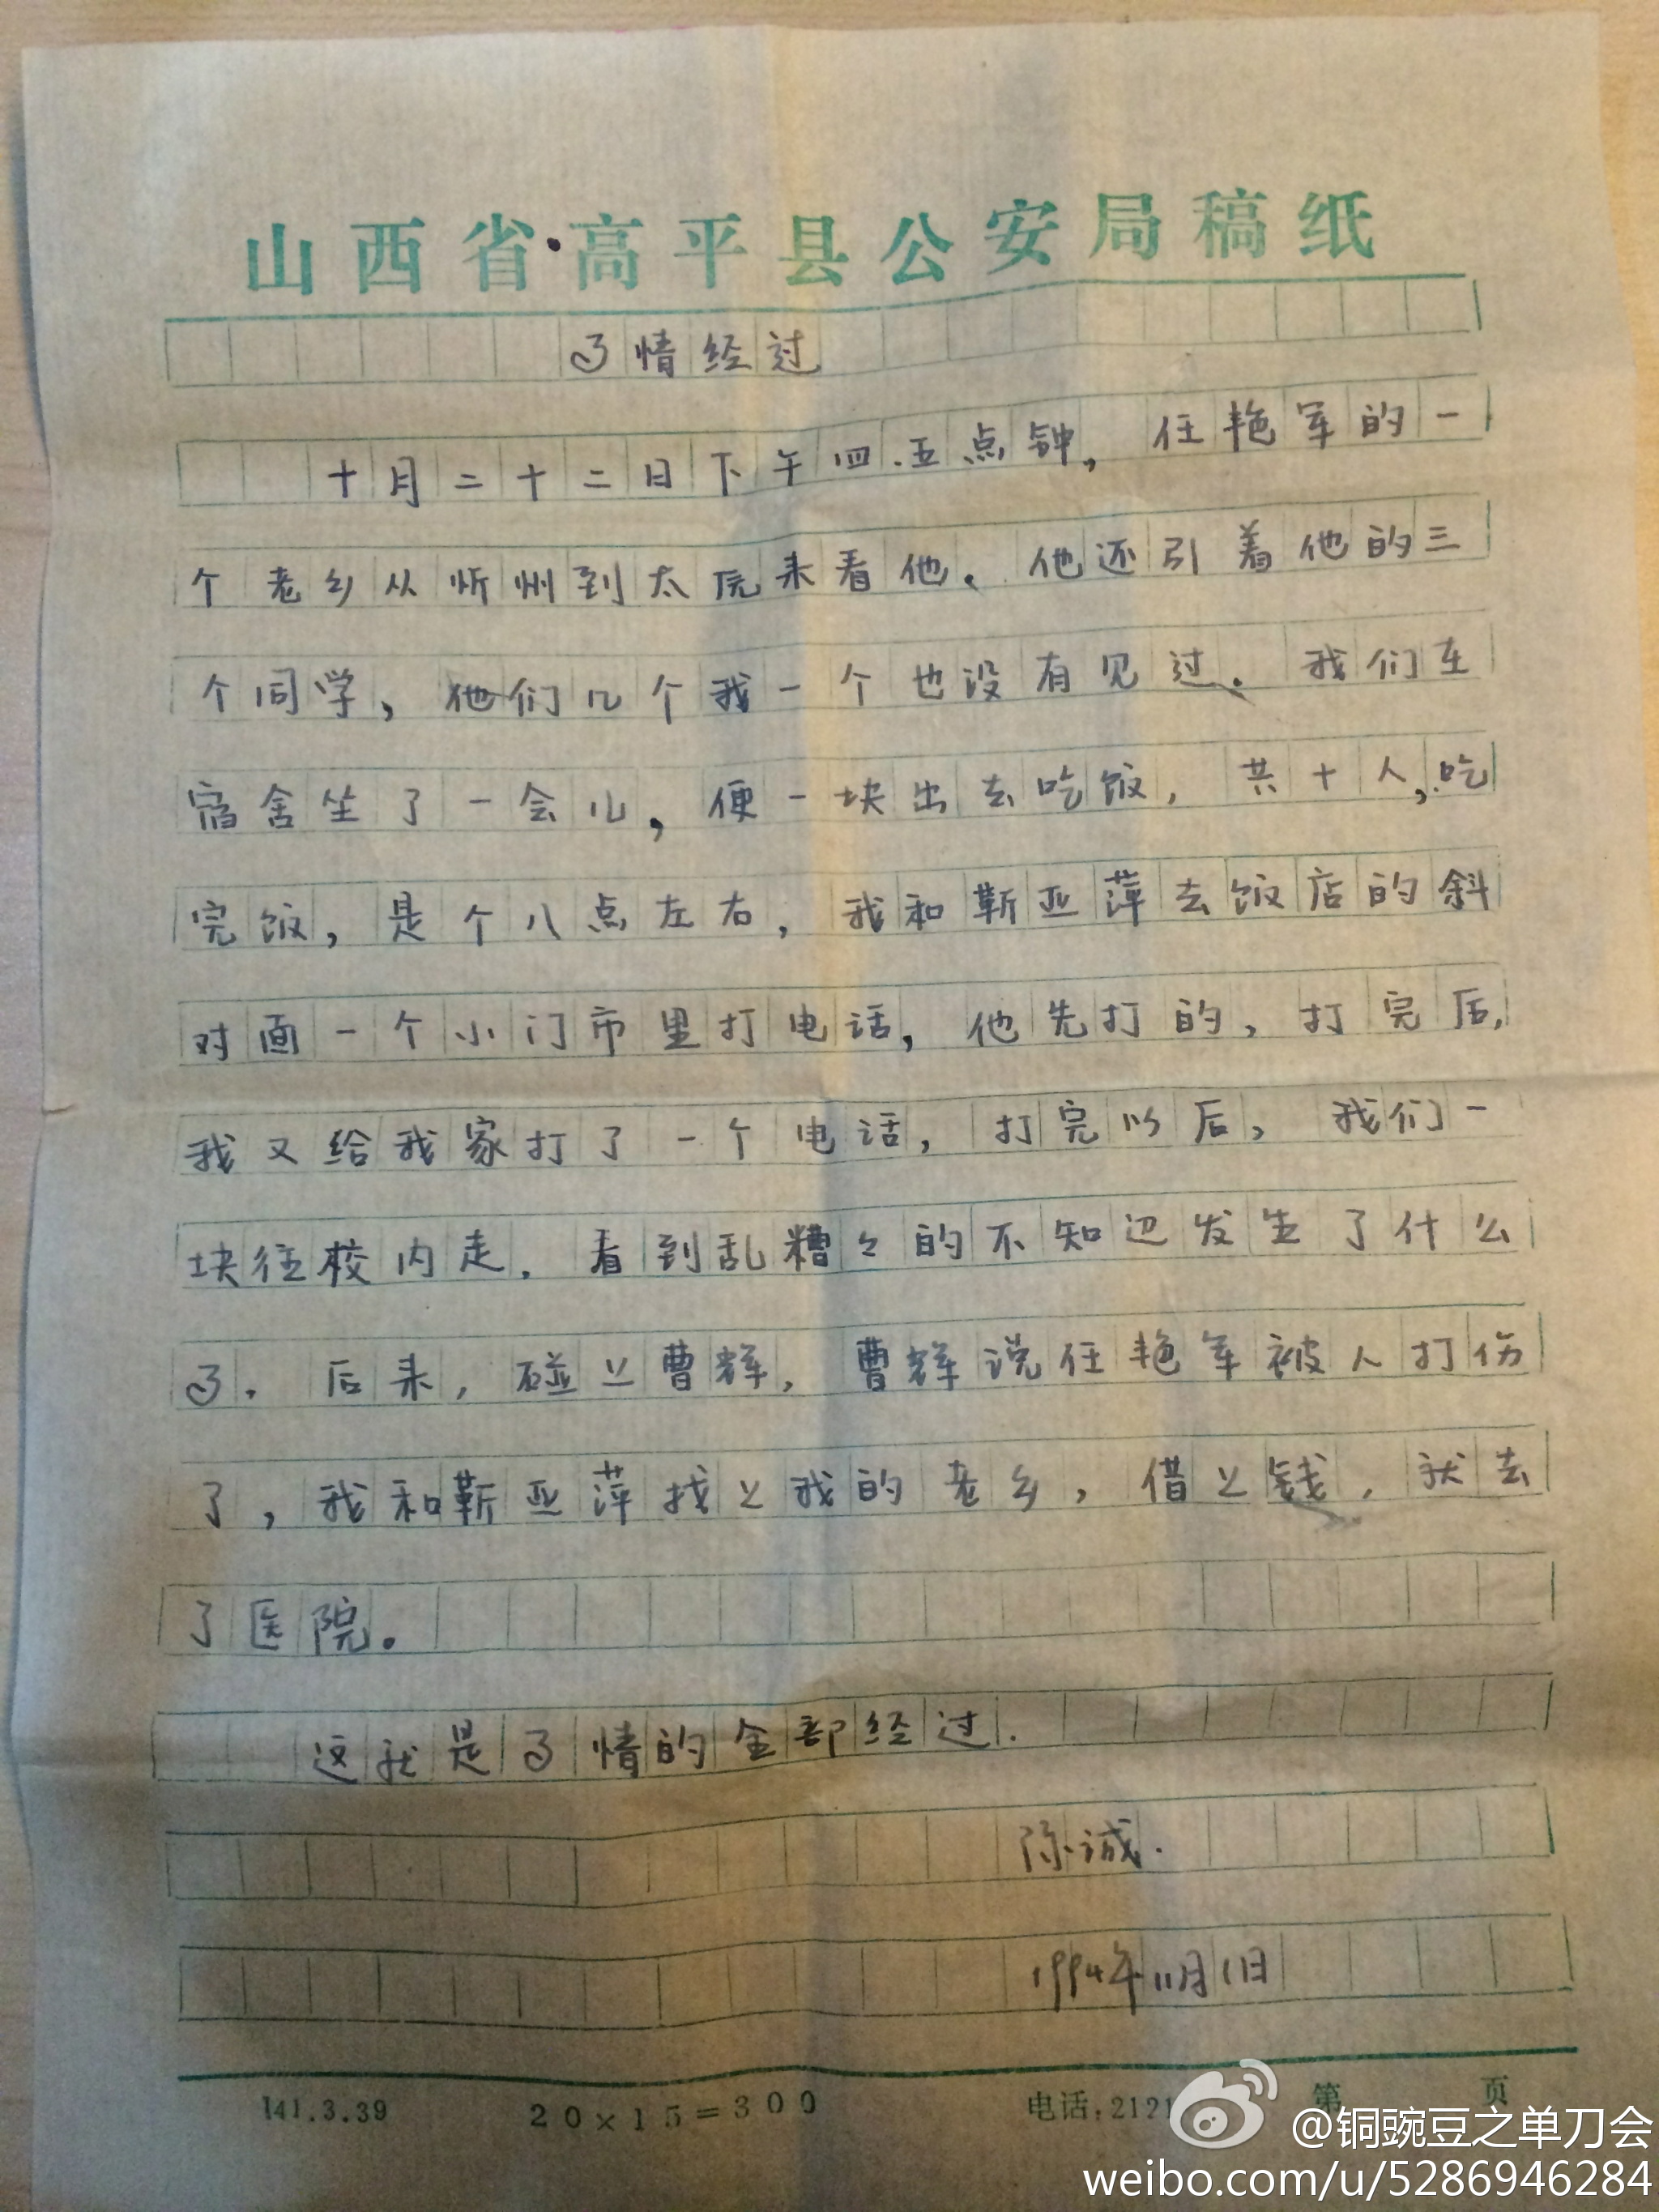 山西省高平县公安局稿纸
了情经过
十月二十二日下午四.五点钟,任艳军的一
个老乡从忻州到太原来看他。他还引着他的三
个同学,他们几个我一个也没有见过。我们在
宿舍坐了一会儿,便一块出去吃饭,共十人,吃
完饭,是个八点左右,我和靳亚萍去饭店的斜
对面一个小门市里打电话,他先打的,打完后,
我又给我家打了一个电话,打完以后,我们一
块往校内走.看到乱糟々的不知道发生了什么
了.后来,碰上曹辉,曹辉说任艳军被人打伤
了,我和靳亚萍找上我的老乡,借上钱,就去
了医院。
这就是了情的全部经过.
陈诚.
1994年11月1日
141.3.39 20×15=300 电话:2121 第 页
@铜豌豆之单刀会
weibo.com/u/5286946284